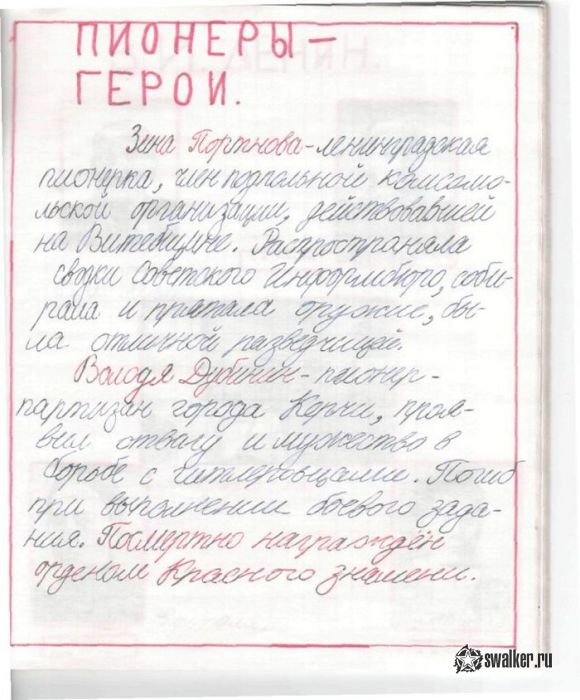 ПИОНЕРЫ —
ГЕРОИ.
Зина Портнова - ленинградская
пионерка, член подпольной комсомо-
льской организации, действовавшей
на Витебщине. Распространяла
сводки Советского Информбюро, соби-
рала и прятала оружие, бы-
ла отличной разведчицей.
Володя Дубинин - пионер -
партизан города Керчи, проя-
вил отвагу и мужество в
борьбе с гитлеровцами. Погиб
при выполнении боевого зада-
ния. Посмертно награждён
орденом Красного знамени.
swalker.ru